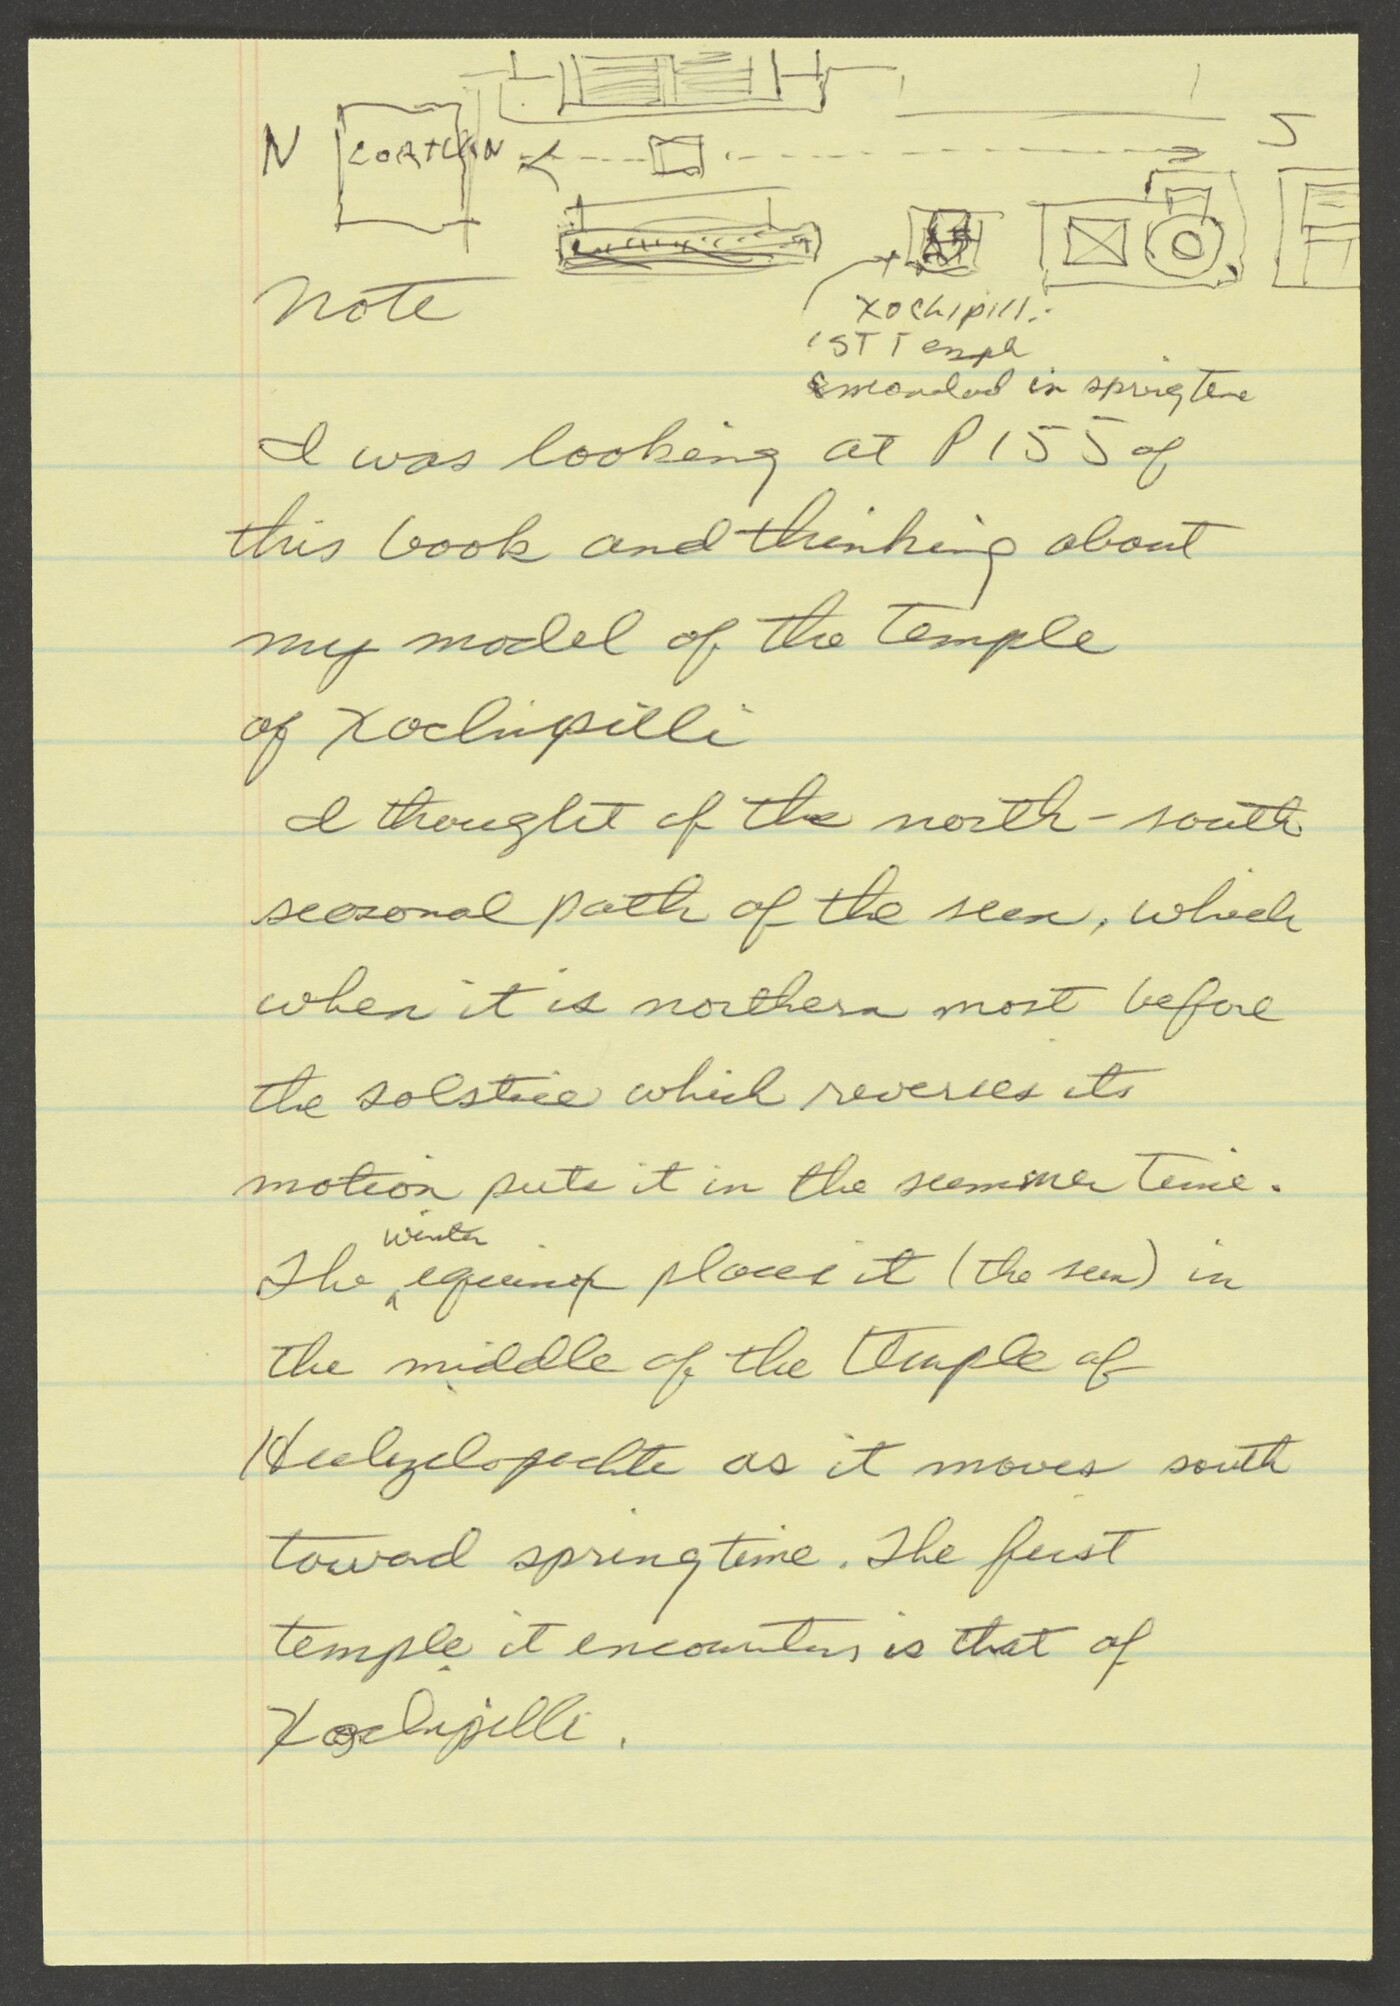 N
S
Note
Xochipilli
1ST Temple
in springtime
I was looking at P 155 of
this book and thinking about
my model of the Temple
of Xochipilli
I thought of the north-south
seasonal path of the sun, which
when it is northern most before
the solstice which reverses its
motion puts it in the summer time.
The winter equinox places it (the sun) in
the middle of the Temple of
as it moves south
toward springtime. The first
temple it encounters is that of
Xochipilli.